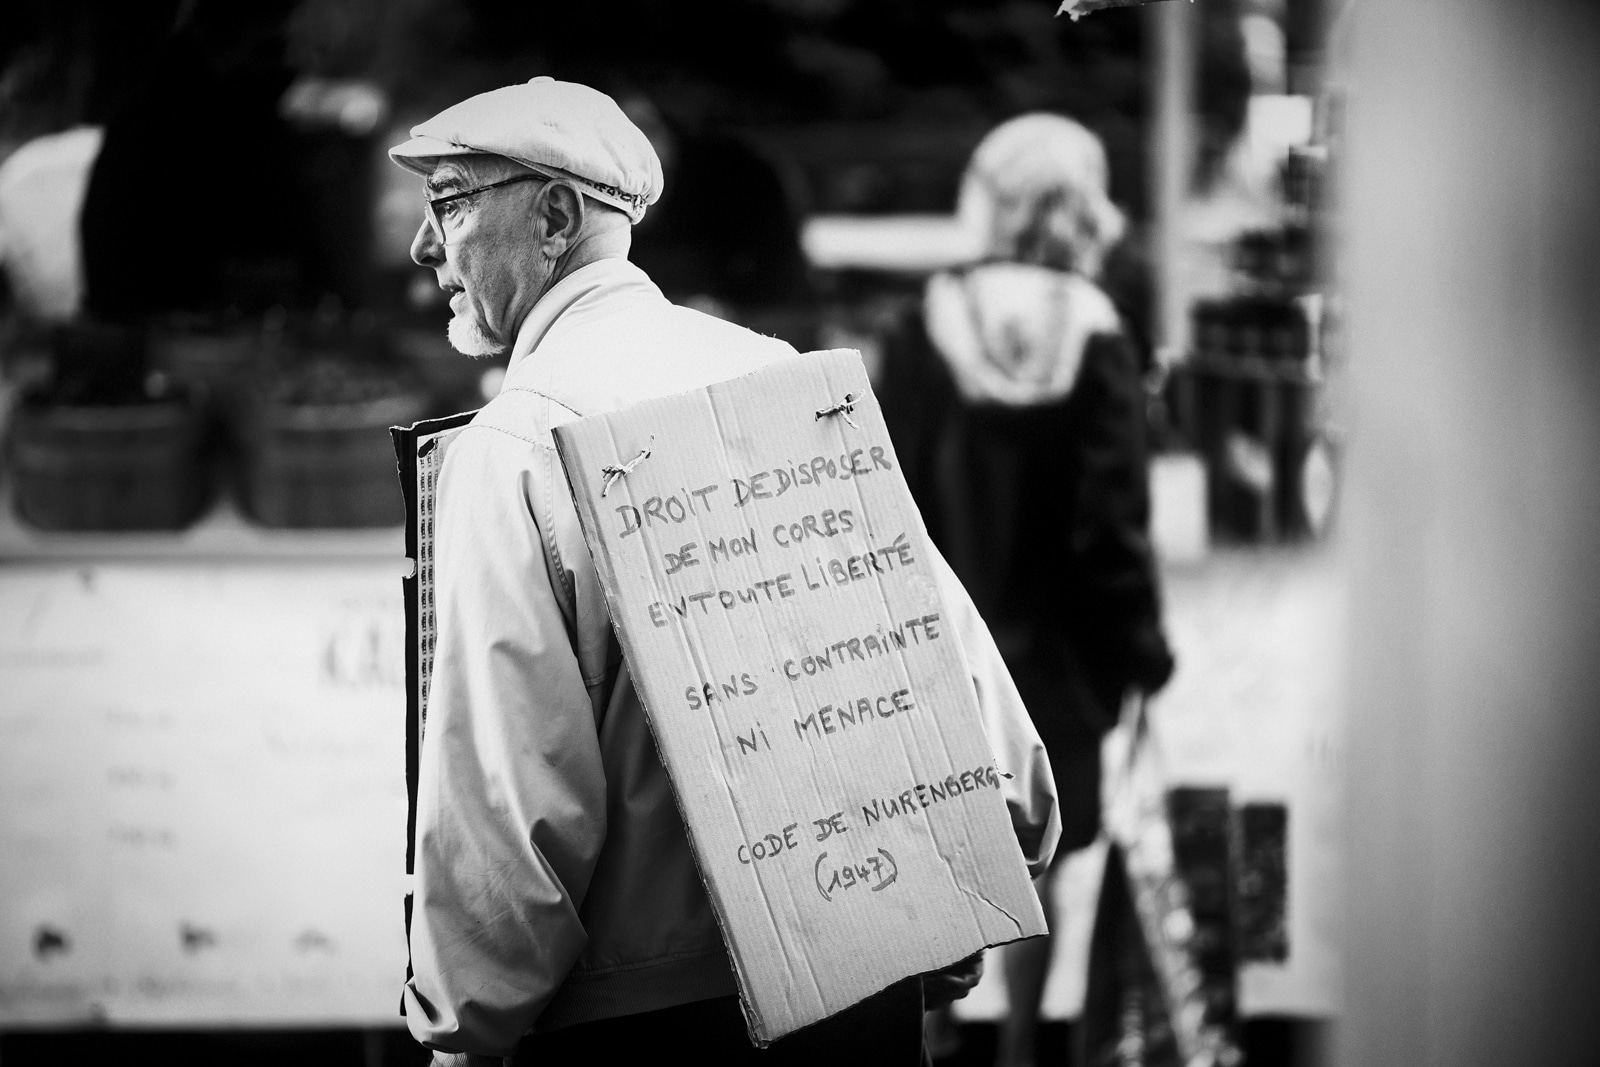 DROIT DE DISPOSER
DE MON CORPS
EN TOUTE LIBERTÉ
SANS CONTRAINTE
NI MENACE
CODE DE NURENBERG
(1947)